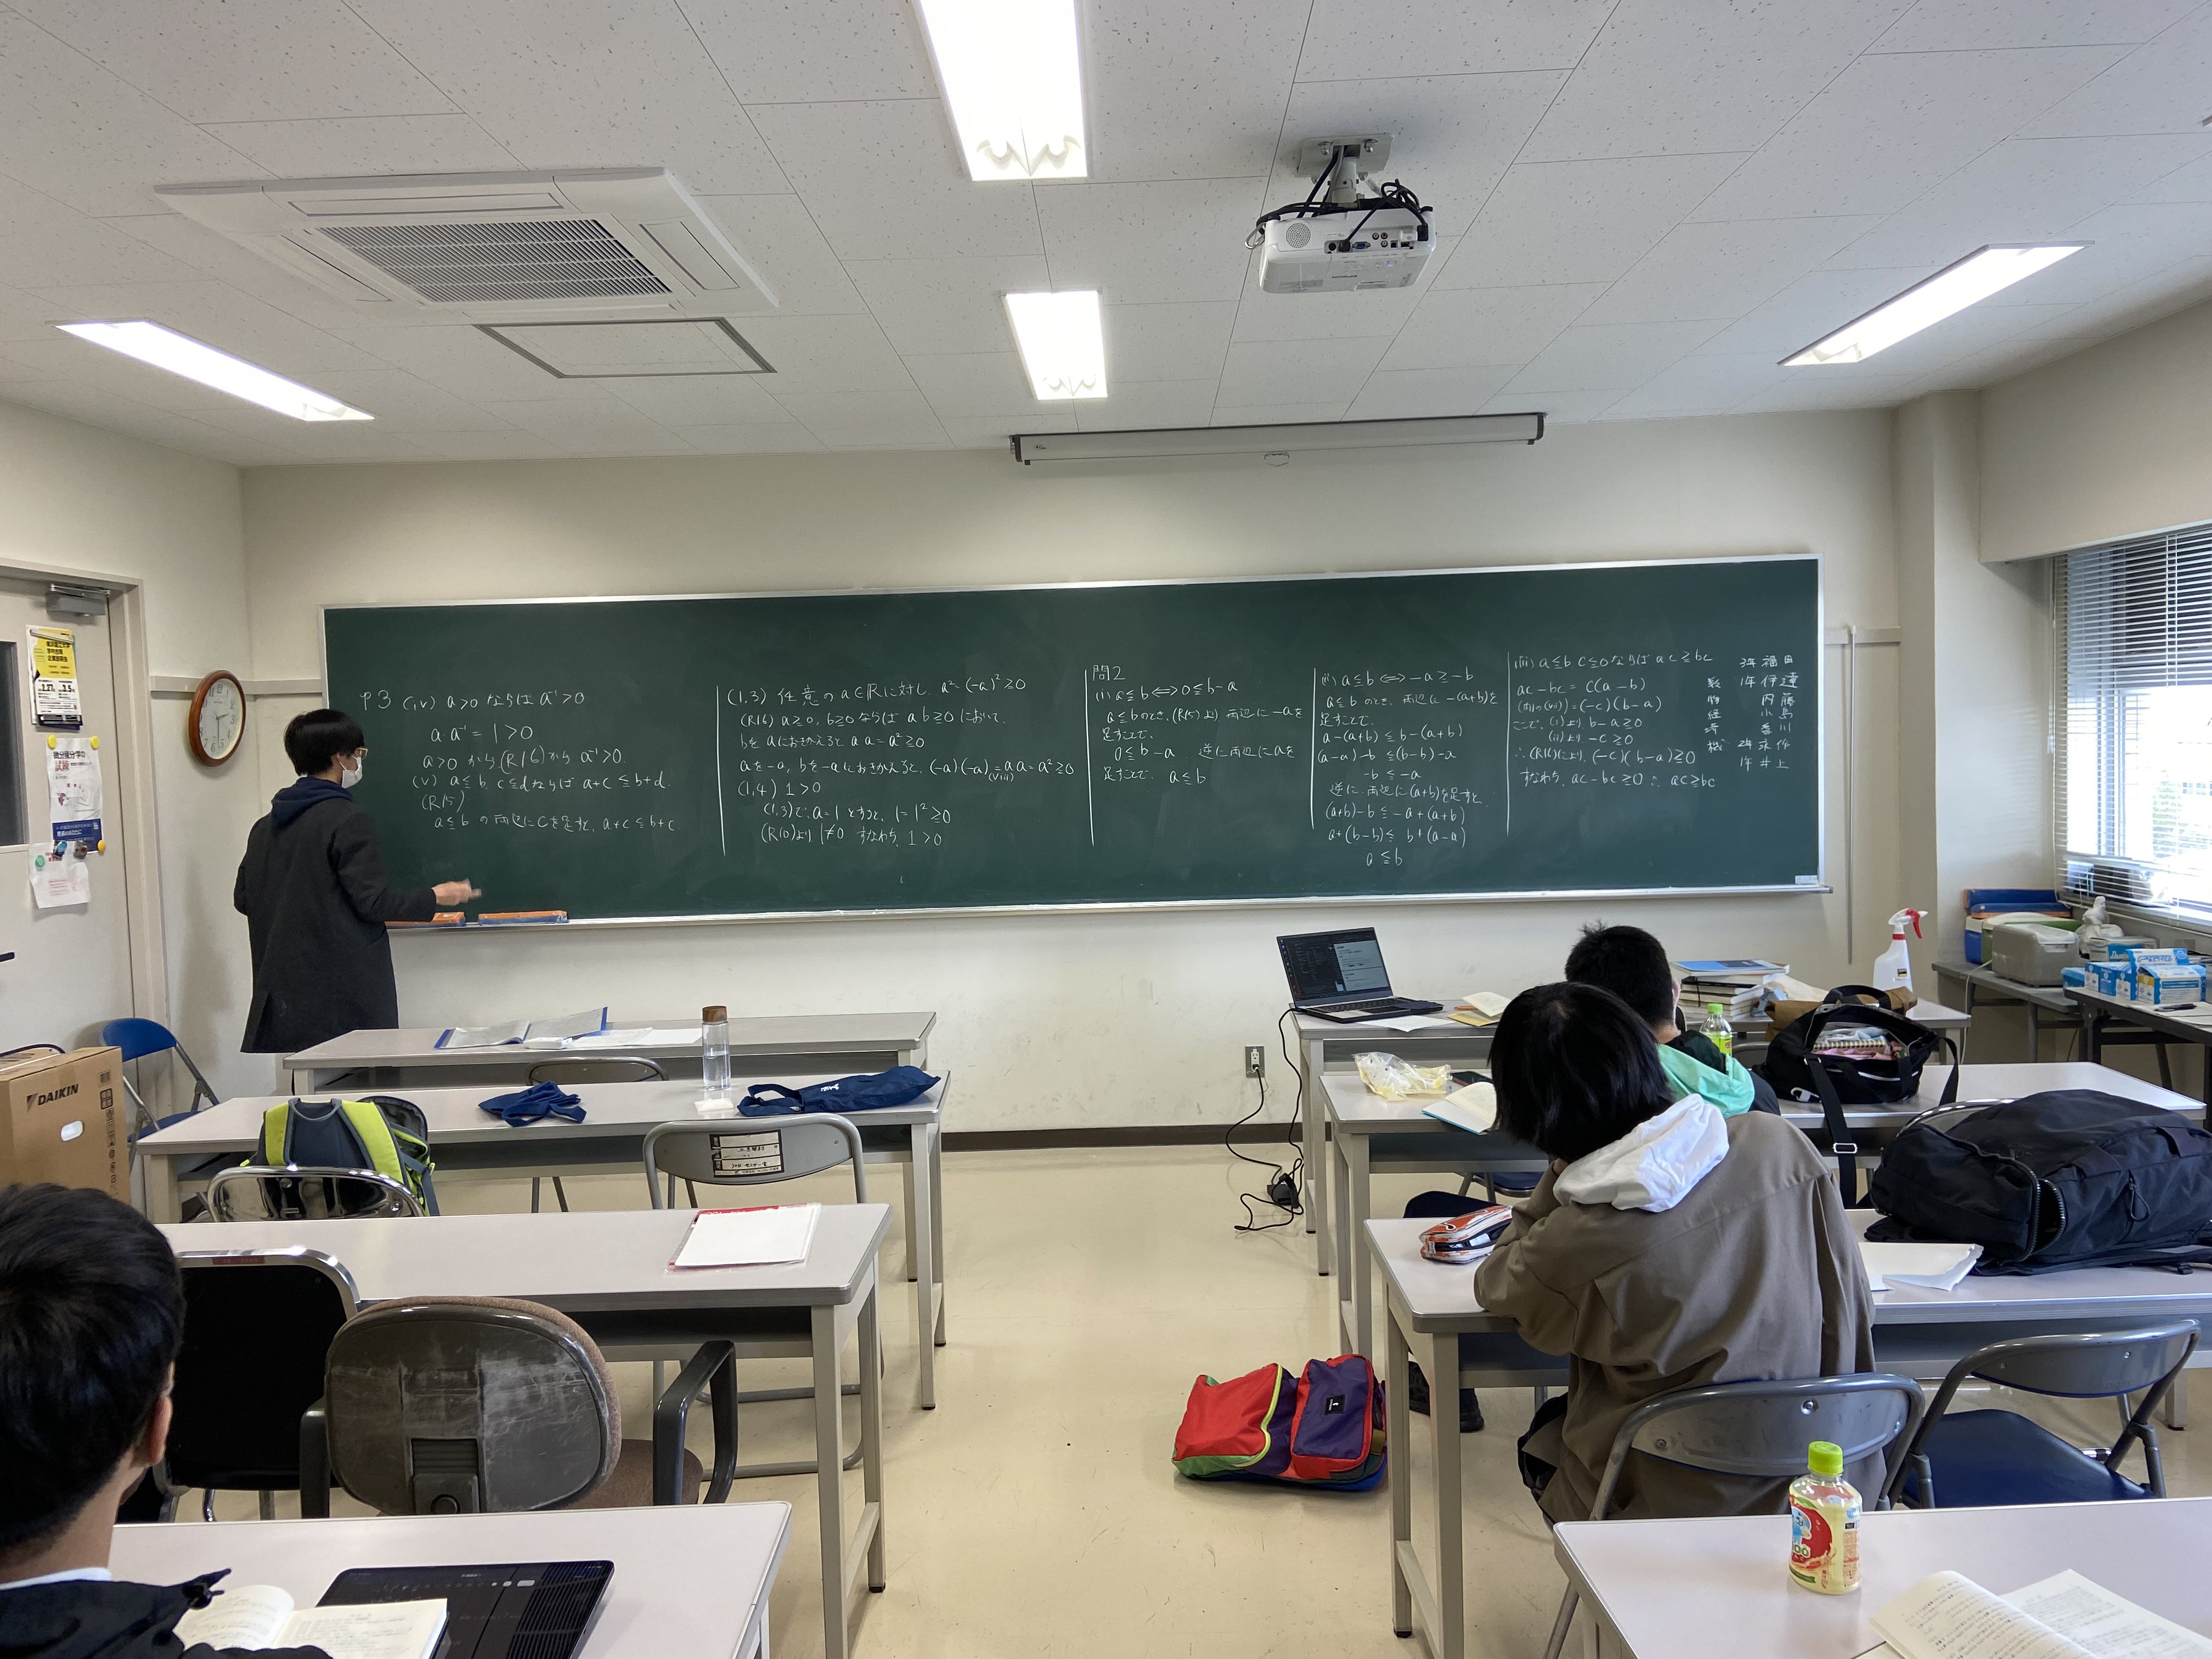 P3 (iv) a>0 ならば a⁻¹>0
a・a⁻¹ = 1 > 0
a>0 から (R16) から a⁻¹>0.
(v) a≦b, c≦d ならば a+c ≦ b+d.
(R15)
a≦b の両辺にcを足すと, a+c ≦ b+c
(1,3) 任意の a∈ℝに対し, a²=(-a)²≧0
(R16) a≧0, b≧0 ならば ab≧0 において,
bをaにおきかえると aa=a²≧0
aを-a, bを-aにおきかえると, (-a)(-a)=aa=a²≧0
(viii)
(1,4) 1>0
(1,3)で, a=1 とすると, 1=1²≧0
(R10)より 1≠0 すなわち, 1>0
問2
(i) a≦b⟺0≦b-a
a≦bのとき, (R15)より 両辺に-aを
足すことで,
0≦b-a 逆に両辺にaを
足すことで, a≦b
(ii) a≦b⟺-a≧-b
a≦bのとき, 両辺に-(a+b)を
足すことで,
a-(a+b)≦b-(a+b)
(a-a)-b≦(b-b)-a
-b≦-a
逆に, 両辺に(a+b)を足すと,
(a+b)-b≦-a+(a+b)
a+(b-b)≦b+(a-a)
a≦b
(iii) a≦b c≦0ならば ac≧bc
ac-bc=c(a-b)
=(-c)(b-a)
ここで, (i)より b-a≧0
(ii)より -c≧0
∴(R16)により, (-c)(b-a)≧0
すなわち, ac-bc≧0 ∴ ac≧bc
3年 福田
1年 伊達
内藤
小島
2年
1年 井上
DAIKIN